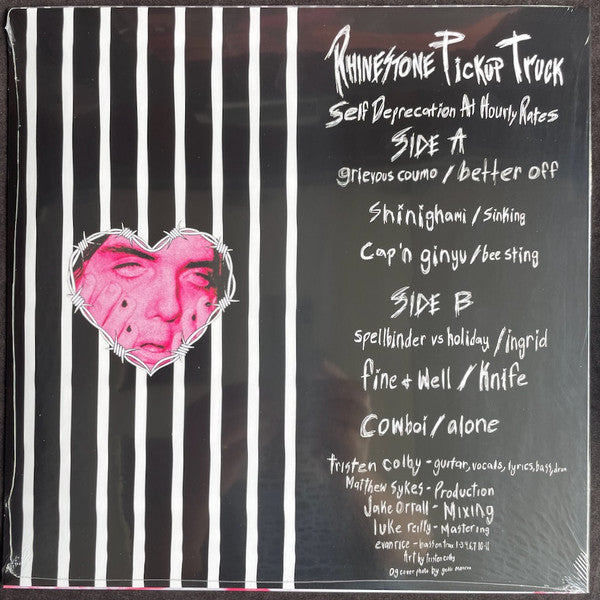 RHINESTONE PICKUP TRUCK
Self Deprecation At Hourly Rates
SIDE A
grievous coumo / better off
Shinighami / Sinking
Cap'n ginyu / bee sting
SIDE B
spellbinder vs holiday / ingrid
fine + well / Knife
Cowboi / alone
tristen colby - guitar, vocals, lyrics, bass, drum
Matthew Sykes - Production
Jake Orrall - Mixing
luke reilly - Mastering
evan rice - bass on trax
Art by tristen colby
og cover photo by